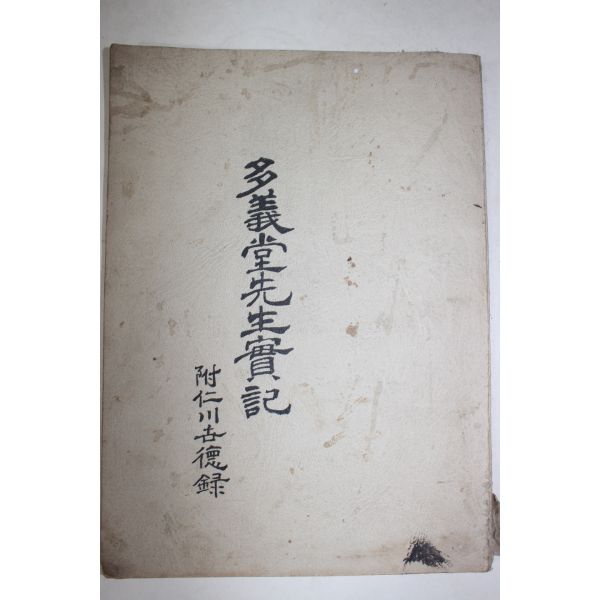 多義堂先生實記
附仁川世德録